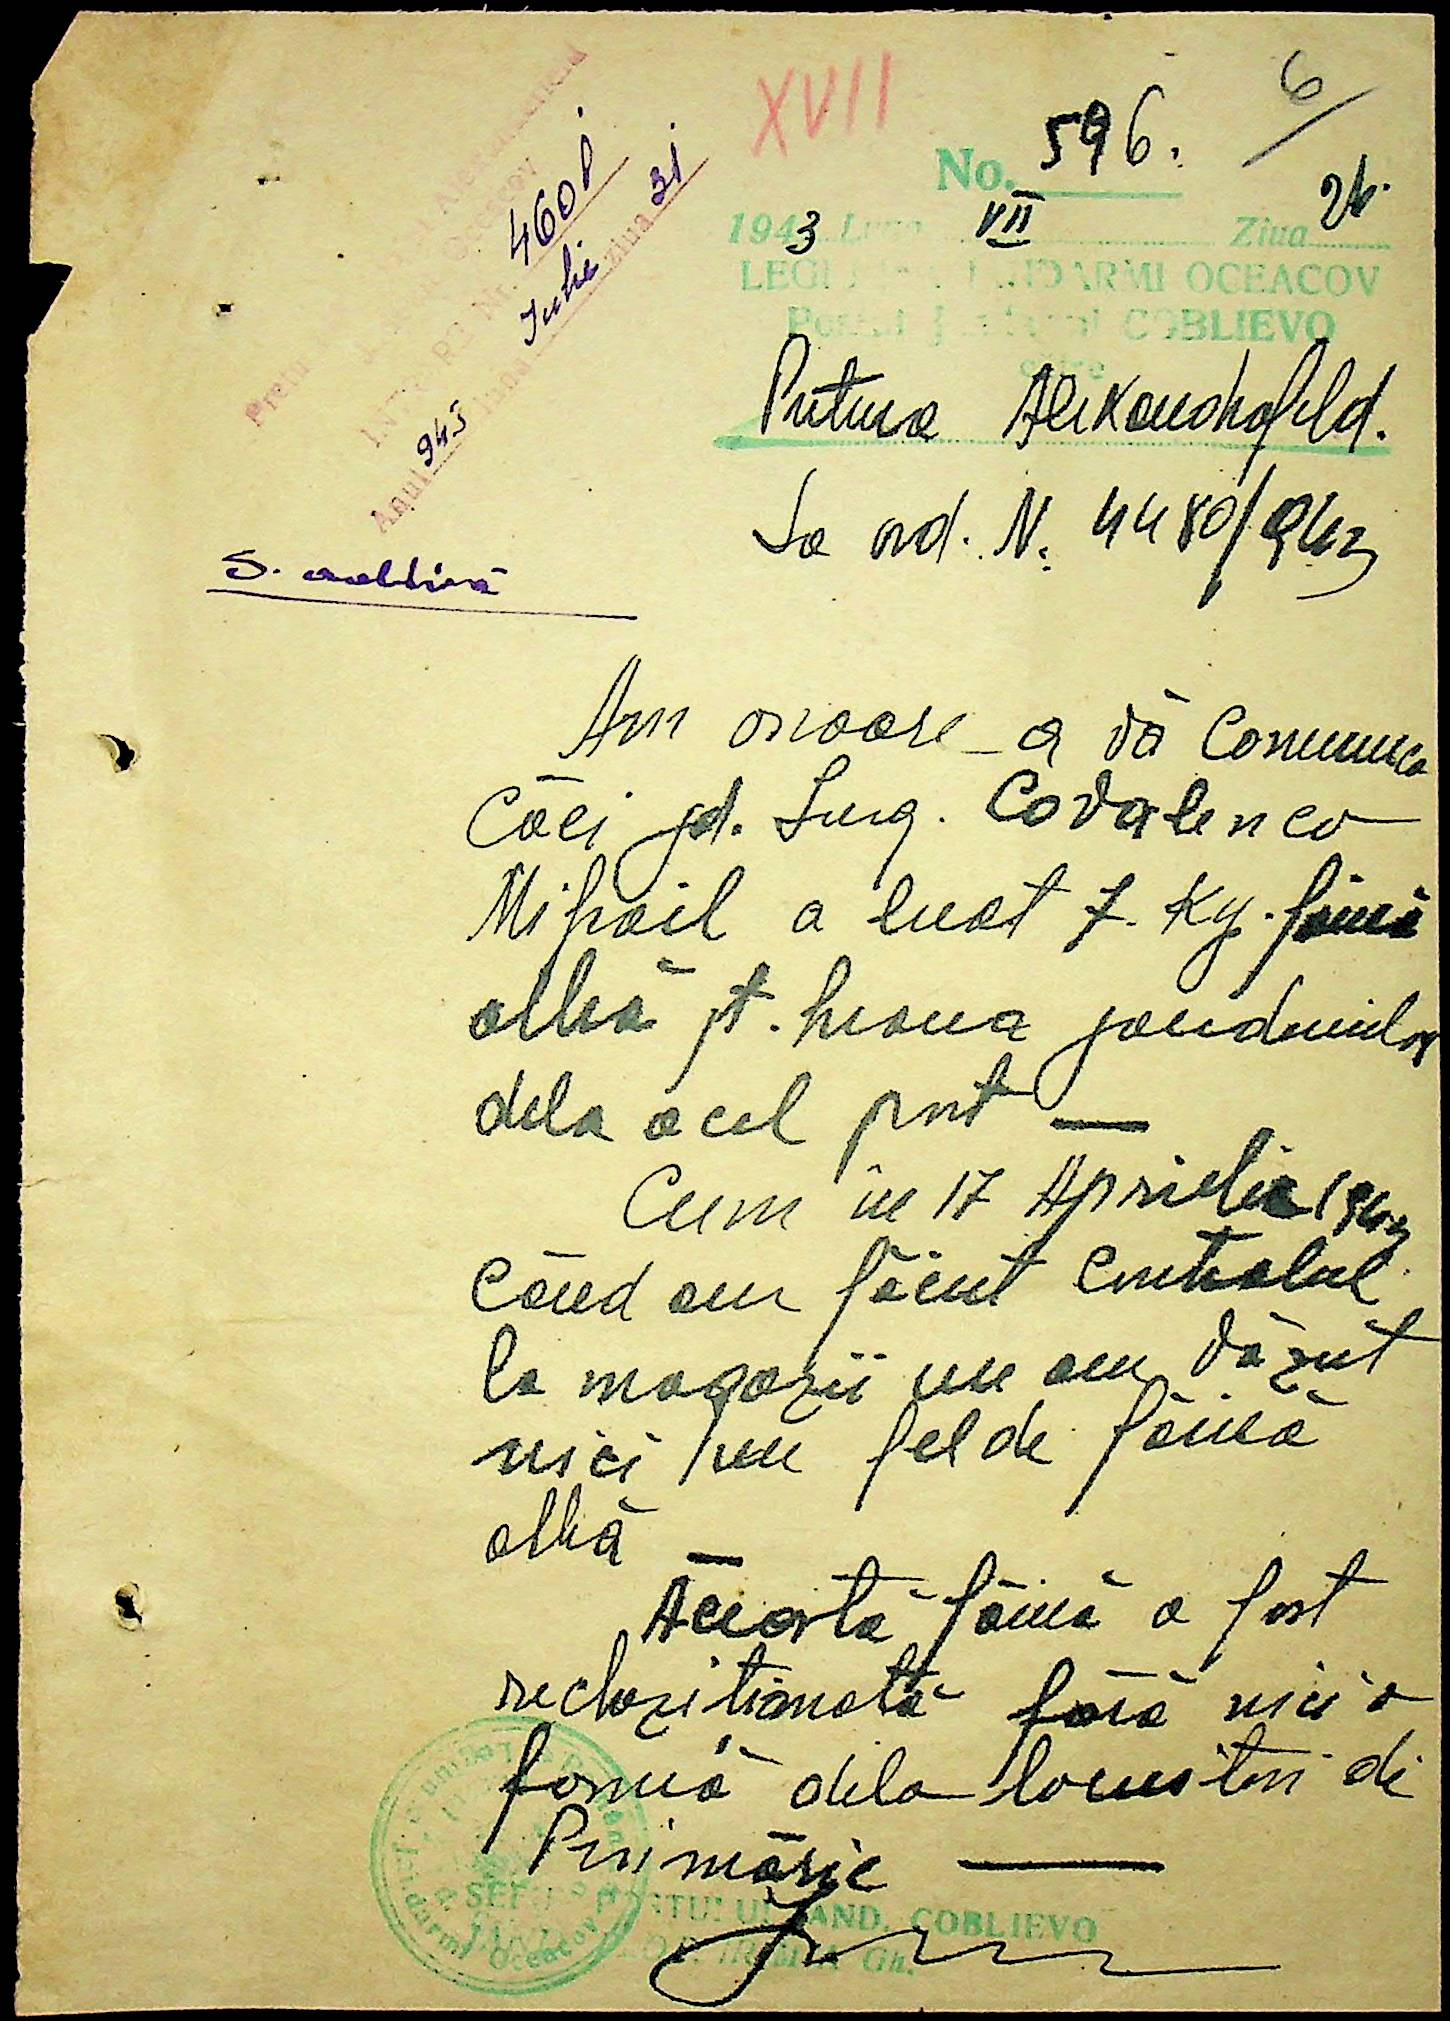 XVII
6/
No. 596.
1943 Luna VII Ziua 26.
LEGIUNEA JANDARMI OCEACOV
Postul Jandarmi COBLIEVO
către
Pretura Alexandrofeld.
La ord. N. 4480/943
4601
Iulie ziua 31
Anul 943 luna
S.
Am onoare a vă comunica
căci pl. Serg. Covalenco
Mihail a luat 7. Kg. făină
albă pt. hrana jandarmilor
dela acel post —
Cum în 17 Aprilie 1943
când am făcut controlul
la magazii nu am văzut
nici un fel de făină
albă —
Această făină a fost
rechiziționată fără nici o
formă dela locuitori de
Primărie —
ȘEFUL POSTULUI JAND. COBLIEVO
Gh.